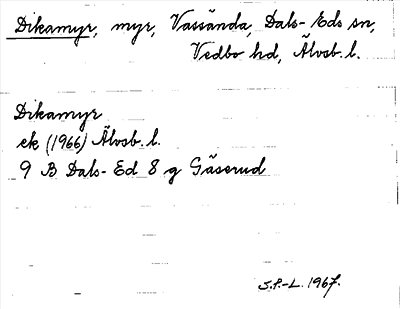 Dikamyr, myr, Vassända, Dals-Eds sn,
Vedbo hd, Älvsb. l.
Dikamyr
ek (1966) Älvsb. l.
9 B Dals-Ed 8 g Gäserud
S.P.-L. 1967.